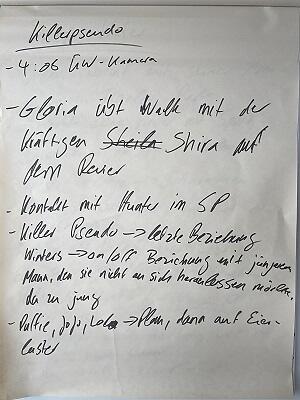 Killerpseudo
- 4:06 GW-Kamera
- Gloria übt Walk mit der
kräftigen Sheila Shira auf
dem Revier
- Kontakt mit Hunter im SP
- Killer Pseudo → letzte Beziehung
Winters → on/off Beziehung mit jüngerem
Mann, den sie nicht an sich heranlassen möchte,
da zu jung
- Duffie, Jojo, → Plan, dann auf Eier-
laster